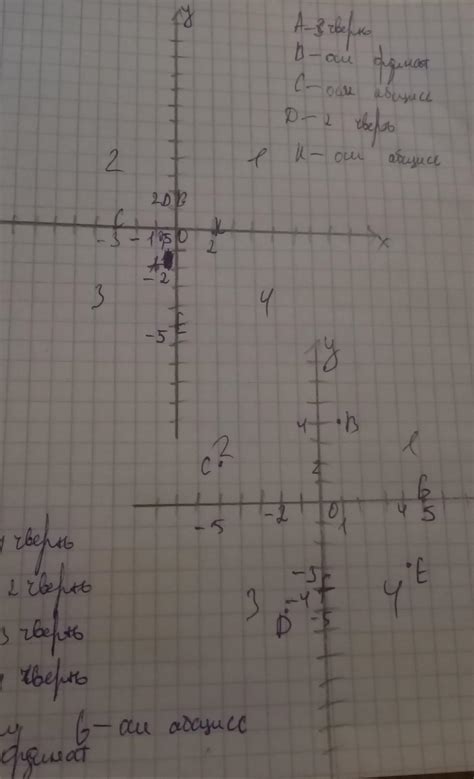 y
A – 3 чверть
B – осі ординат
C – осі абцисс
D – 2 чверть
K – осі абцисс
2
1
2 D B
C
K
-3
-1
0
2
x
A
-2
3
4
-5 E
y
4 B
C 2
1
2
G
-5
-2
0
1
4
5
-3
E
3
-4
4
D
-5
чверть
2 чверть
3 чверть
чверть
G – осі абцисс
ординат